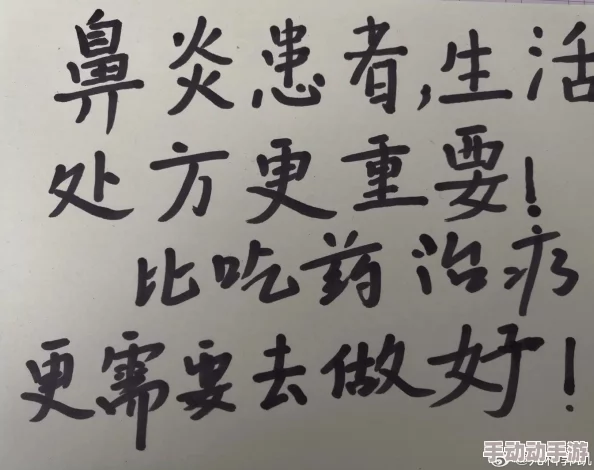 鼻炎患者,生活
处方更重要!
比吃药治疗
更需要去做好!
手动动手游